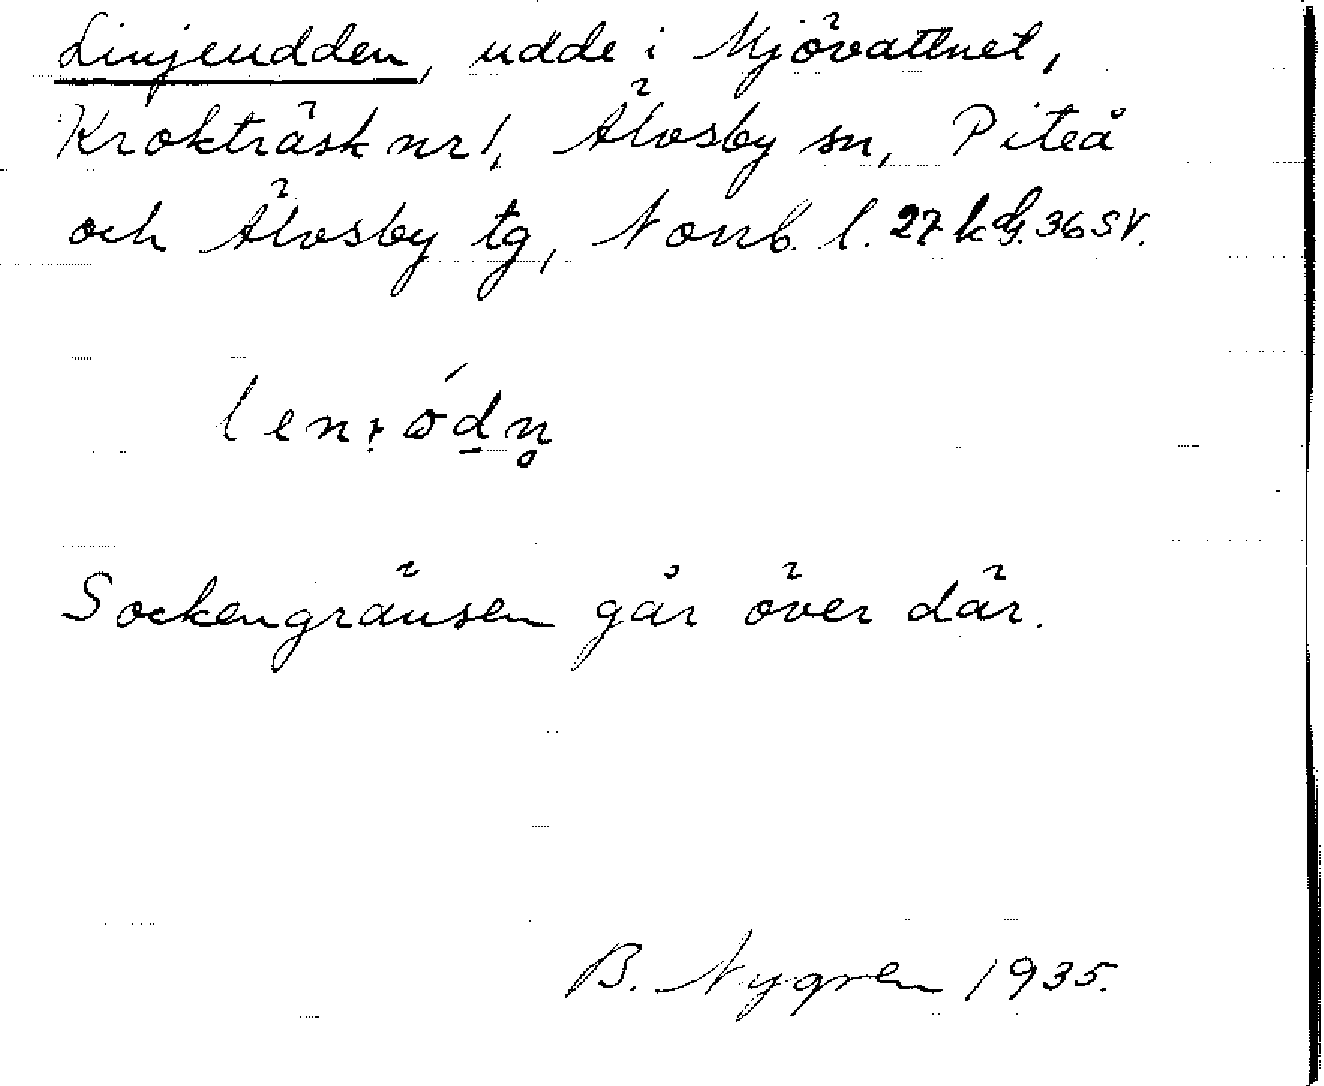 Linjeudden, udde i Mjövattnet,
Krokträsk nr 1, Älvsby sn, Piteå
och Älvsby tg, Norrb. l. 27 kbl. 36 SV.
Sockengränsen går över där.
B. Nygren 1935.